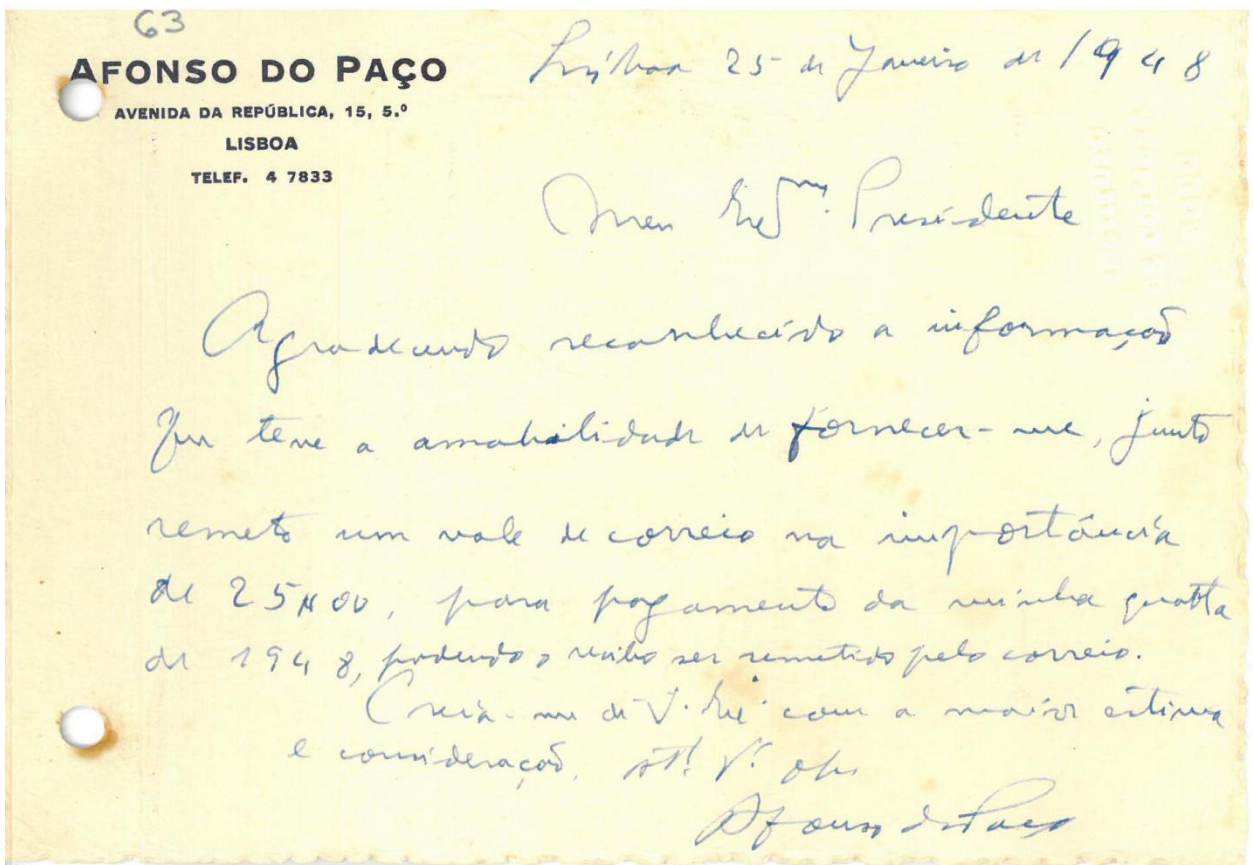 63
AFONSO DO PAÇO
AVENIDA DA REPÚBLICA, 15, 5.º
LISBOA
TELEF. 4 7833
Lisboa 25 de Janeiro de 1948
Meu Exᵐᵒ. Presidente
Agradecendo reconhecido a informação
que teve a amabilidade de fornecer-me, junto
remeto um vale de correio na importância
de 25$00, para pagamento da minha quotta
de 1948, podendo o recibo ser remetido pelo correio.
Creia-me de V. Exª com a maior estima
e consideração,
Afonso do Paço